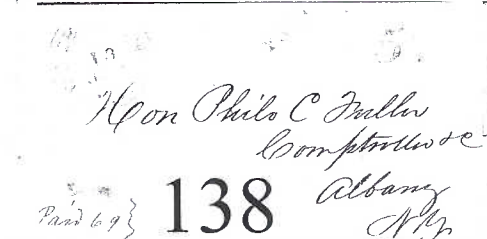 Hon Philo C Fuller
Comptroller &c
Albany
N.Y.
Paid 69}
138